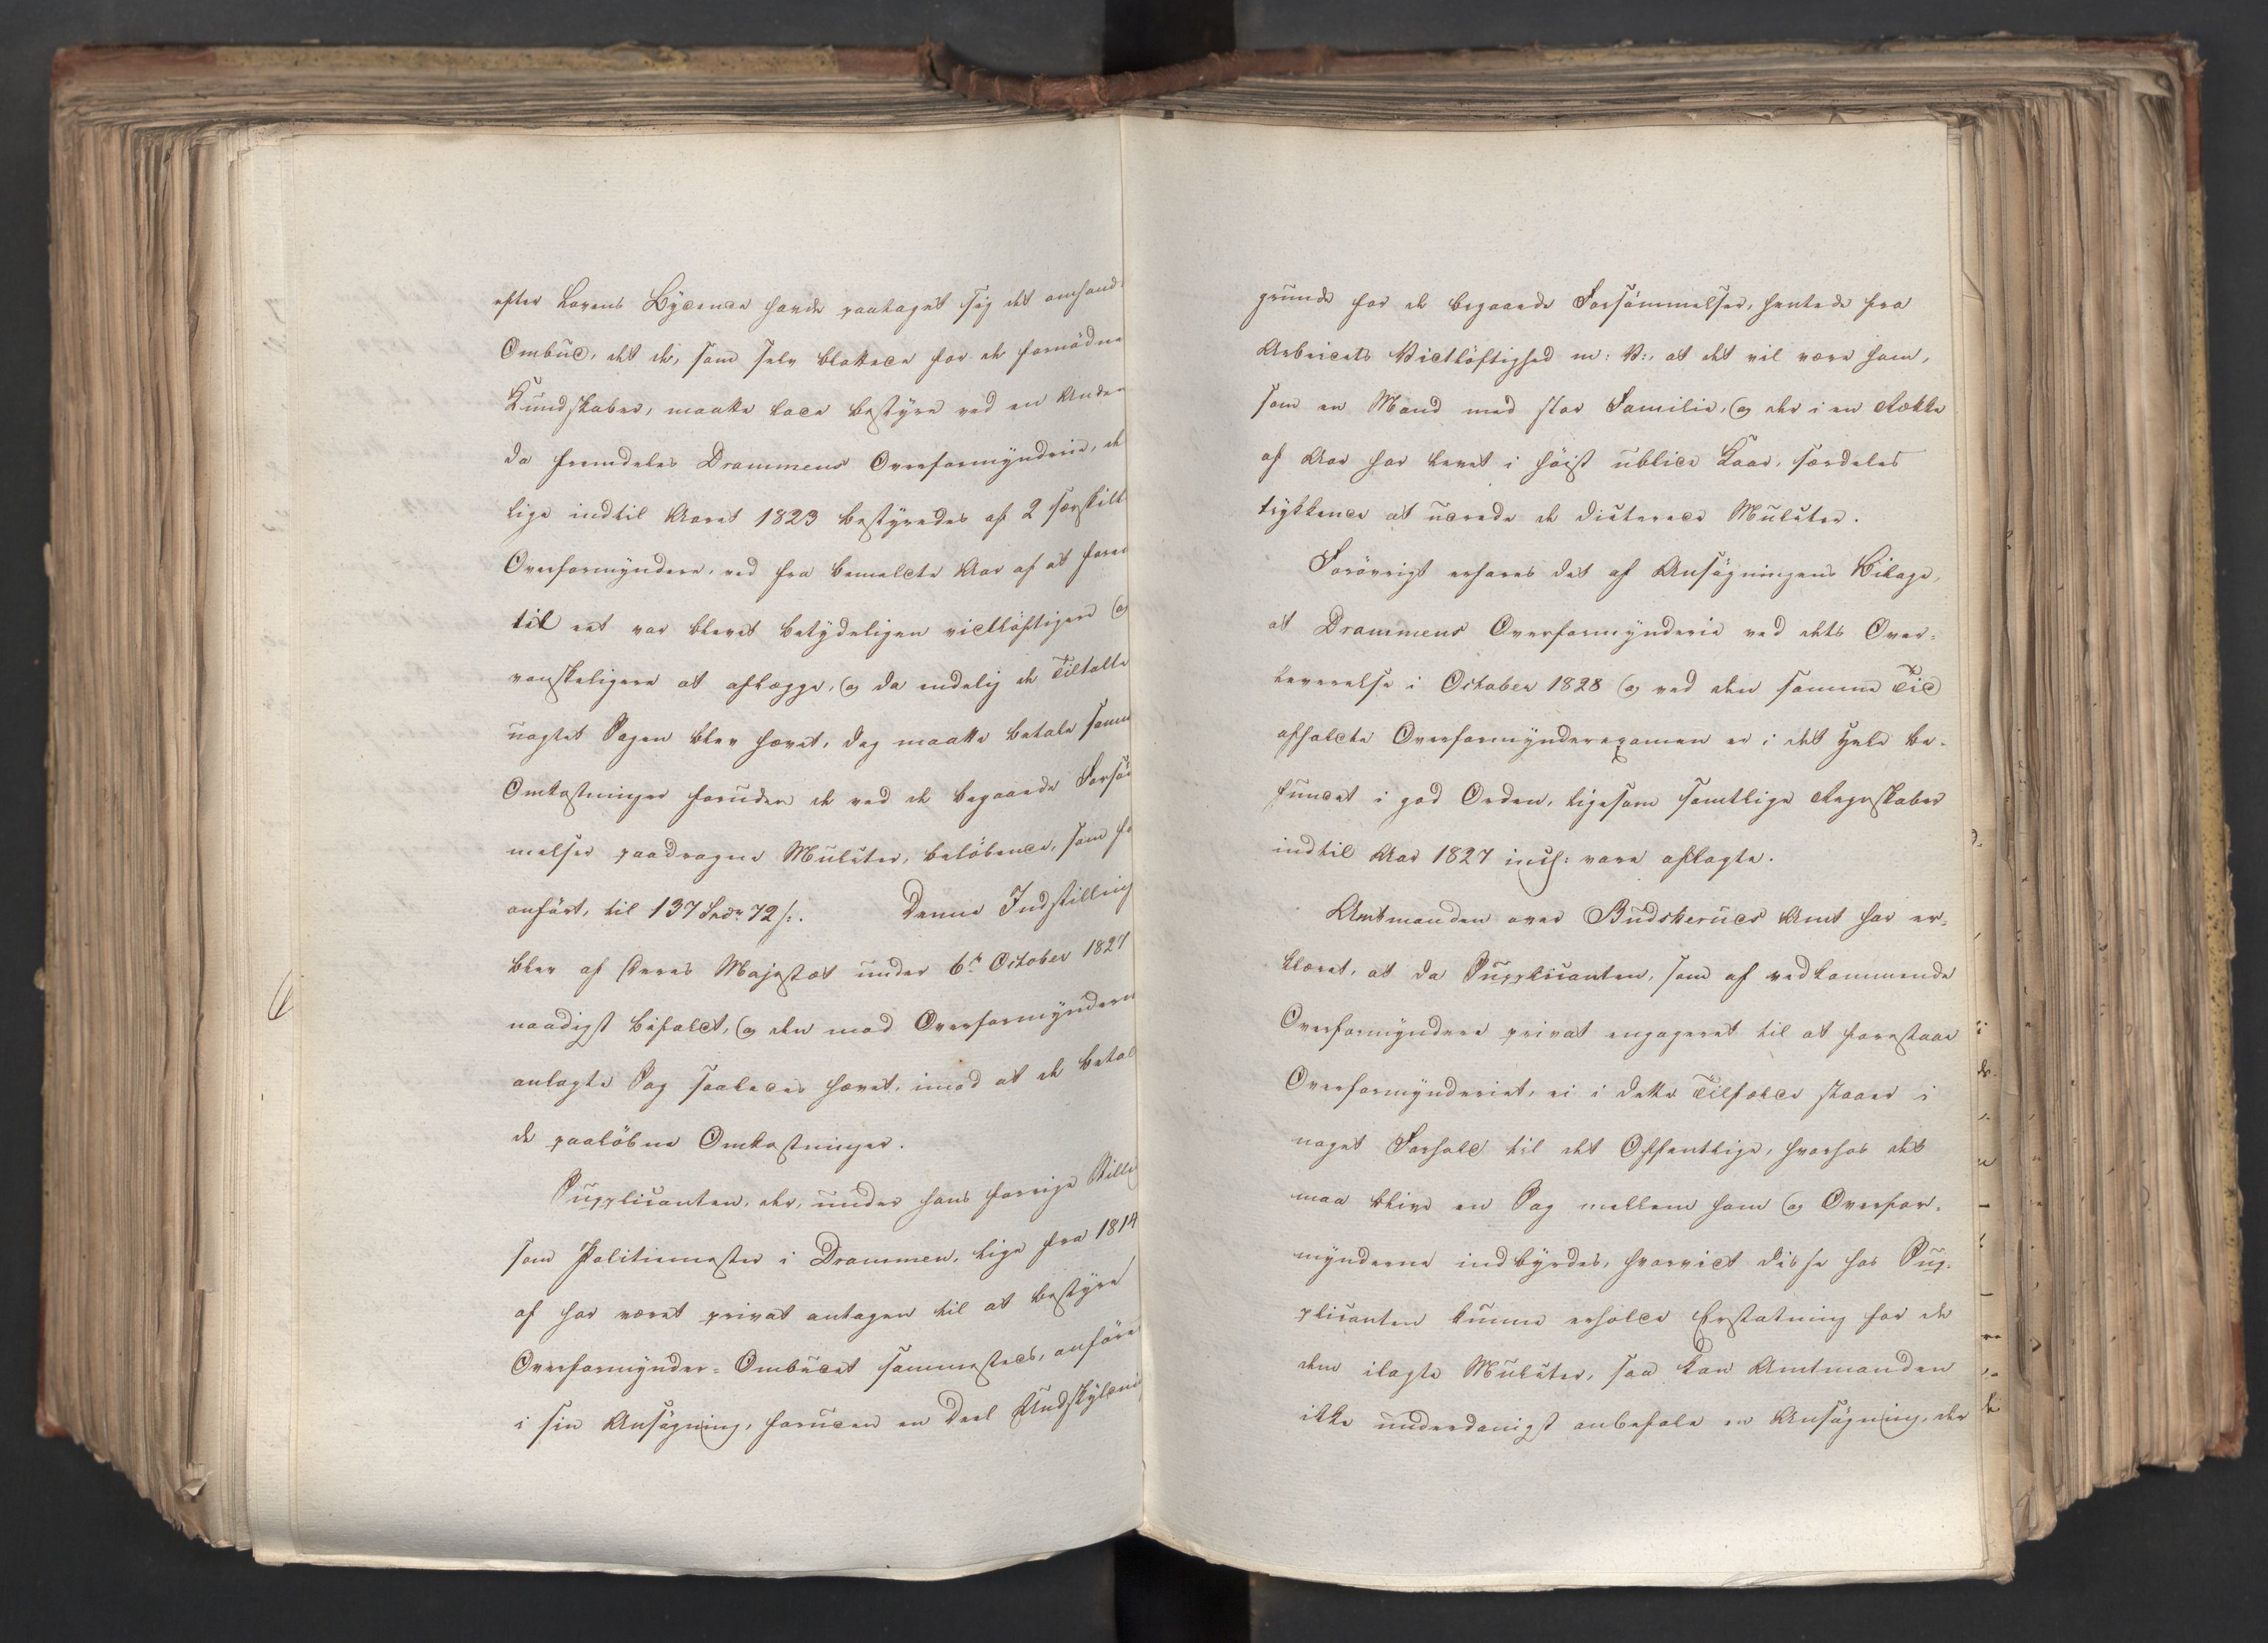 efter Lovens Bydende havde paataget sig det omhand
Ombud, det de, som selv blottede for de fornødne
Kundskaber, maatte lade bestyre ved en Anden
da fremdeles Drammens Overformynderie, de
lige indtil Aaret 1823 bestyredes af 2 særskilt
Overformyndere, ved fra bemeldte Aar af at foren
til eet var blevet betydeligen vidtløftigere og
vanskeligere at aflægge, og da endelig de Tiltalte
uagtet Sagen blev hævet, dog maatte betale samm
Omkostninger foruden de ved de begaaede Forsøm
melser paadragne Mulcter, beløbende, som fo
anført, til 137 Spdr 72 s:. Denne Indstilling
blev af Deres Majestæt under 6te October 1827
naadigst bifaldt, og den mod Overformyndern
anlagte Sag saaledes hævet, imod at de betal
de paaløbne Omkostninger.
Supplicanten, der, under hans forrige Stilli
som Politiemester i Drammen, lige fra 1814
af har været privat antagen til at bestyre
Overformynder-Ombudet sammesteds, anføre
i sin Ansøgning, foruden en Deel Undskyldni
grunde for de begaaede Forsømmelser, hentede fra
Arbeidets Vidtløftighed m: V:, at det vil være ham,
som en Mand med stor Familie, og der i en Række
af Aar har levet i høist ublide Kaar, særdeles
trykkende at udrede de dicterede Mulcter.
Forøvrigt erfares det af Ansøgningens Bilage,
at Drammens Overformynderie ved dets Over-
leverelse i October 1828 og ved den samme Tid
afholdte Overformynderexamen er i det Hele be-
fundet i god Orden, ligesom samtlige Regnskaber
indtil Aar 1827 incl: vare aflagte.
Amtmanden over Budskeruds Amt har er-
klæret, at da Supplicanten, som af vedkommende
Overformyndere privat engageret til at forestaae
Overformynderiet, ei i dette Tilfælde staaer i
noget Forhold til det Offentlige, hvorfor det
maa blive en Sag mellem ham og Overfor-
mynderne indbyrdes, hvorvidt disse hos Sup-
plicanten kunne erholde Erstatning for de
dem ilagte Mulcter, saa kan Amtmanden
ikke underdanigst anbefale en Ansøgning, der